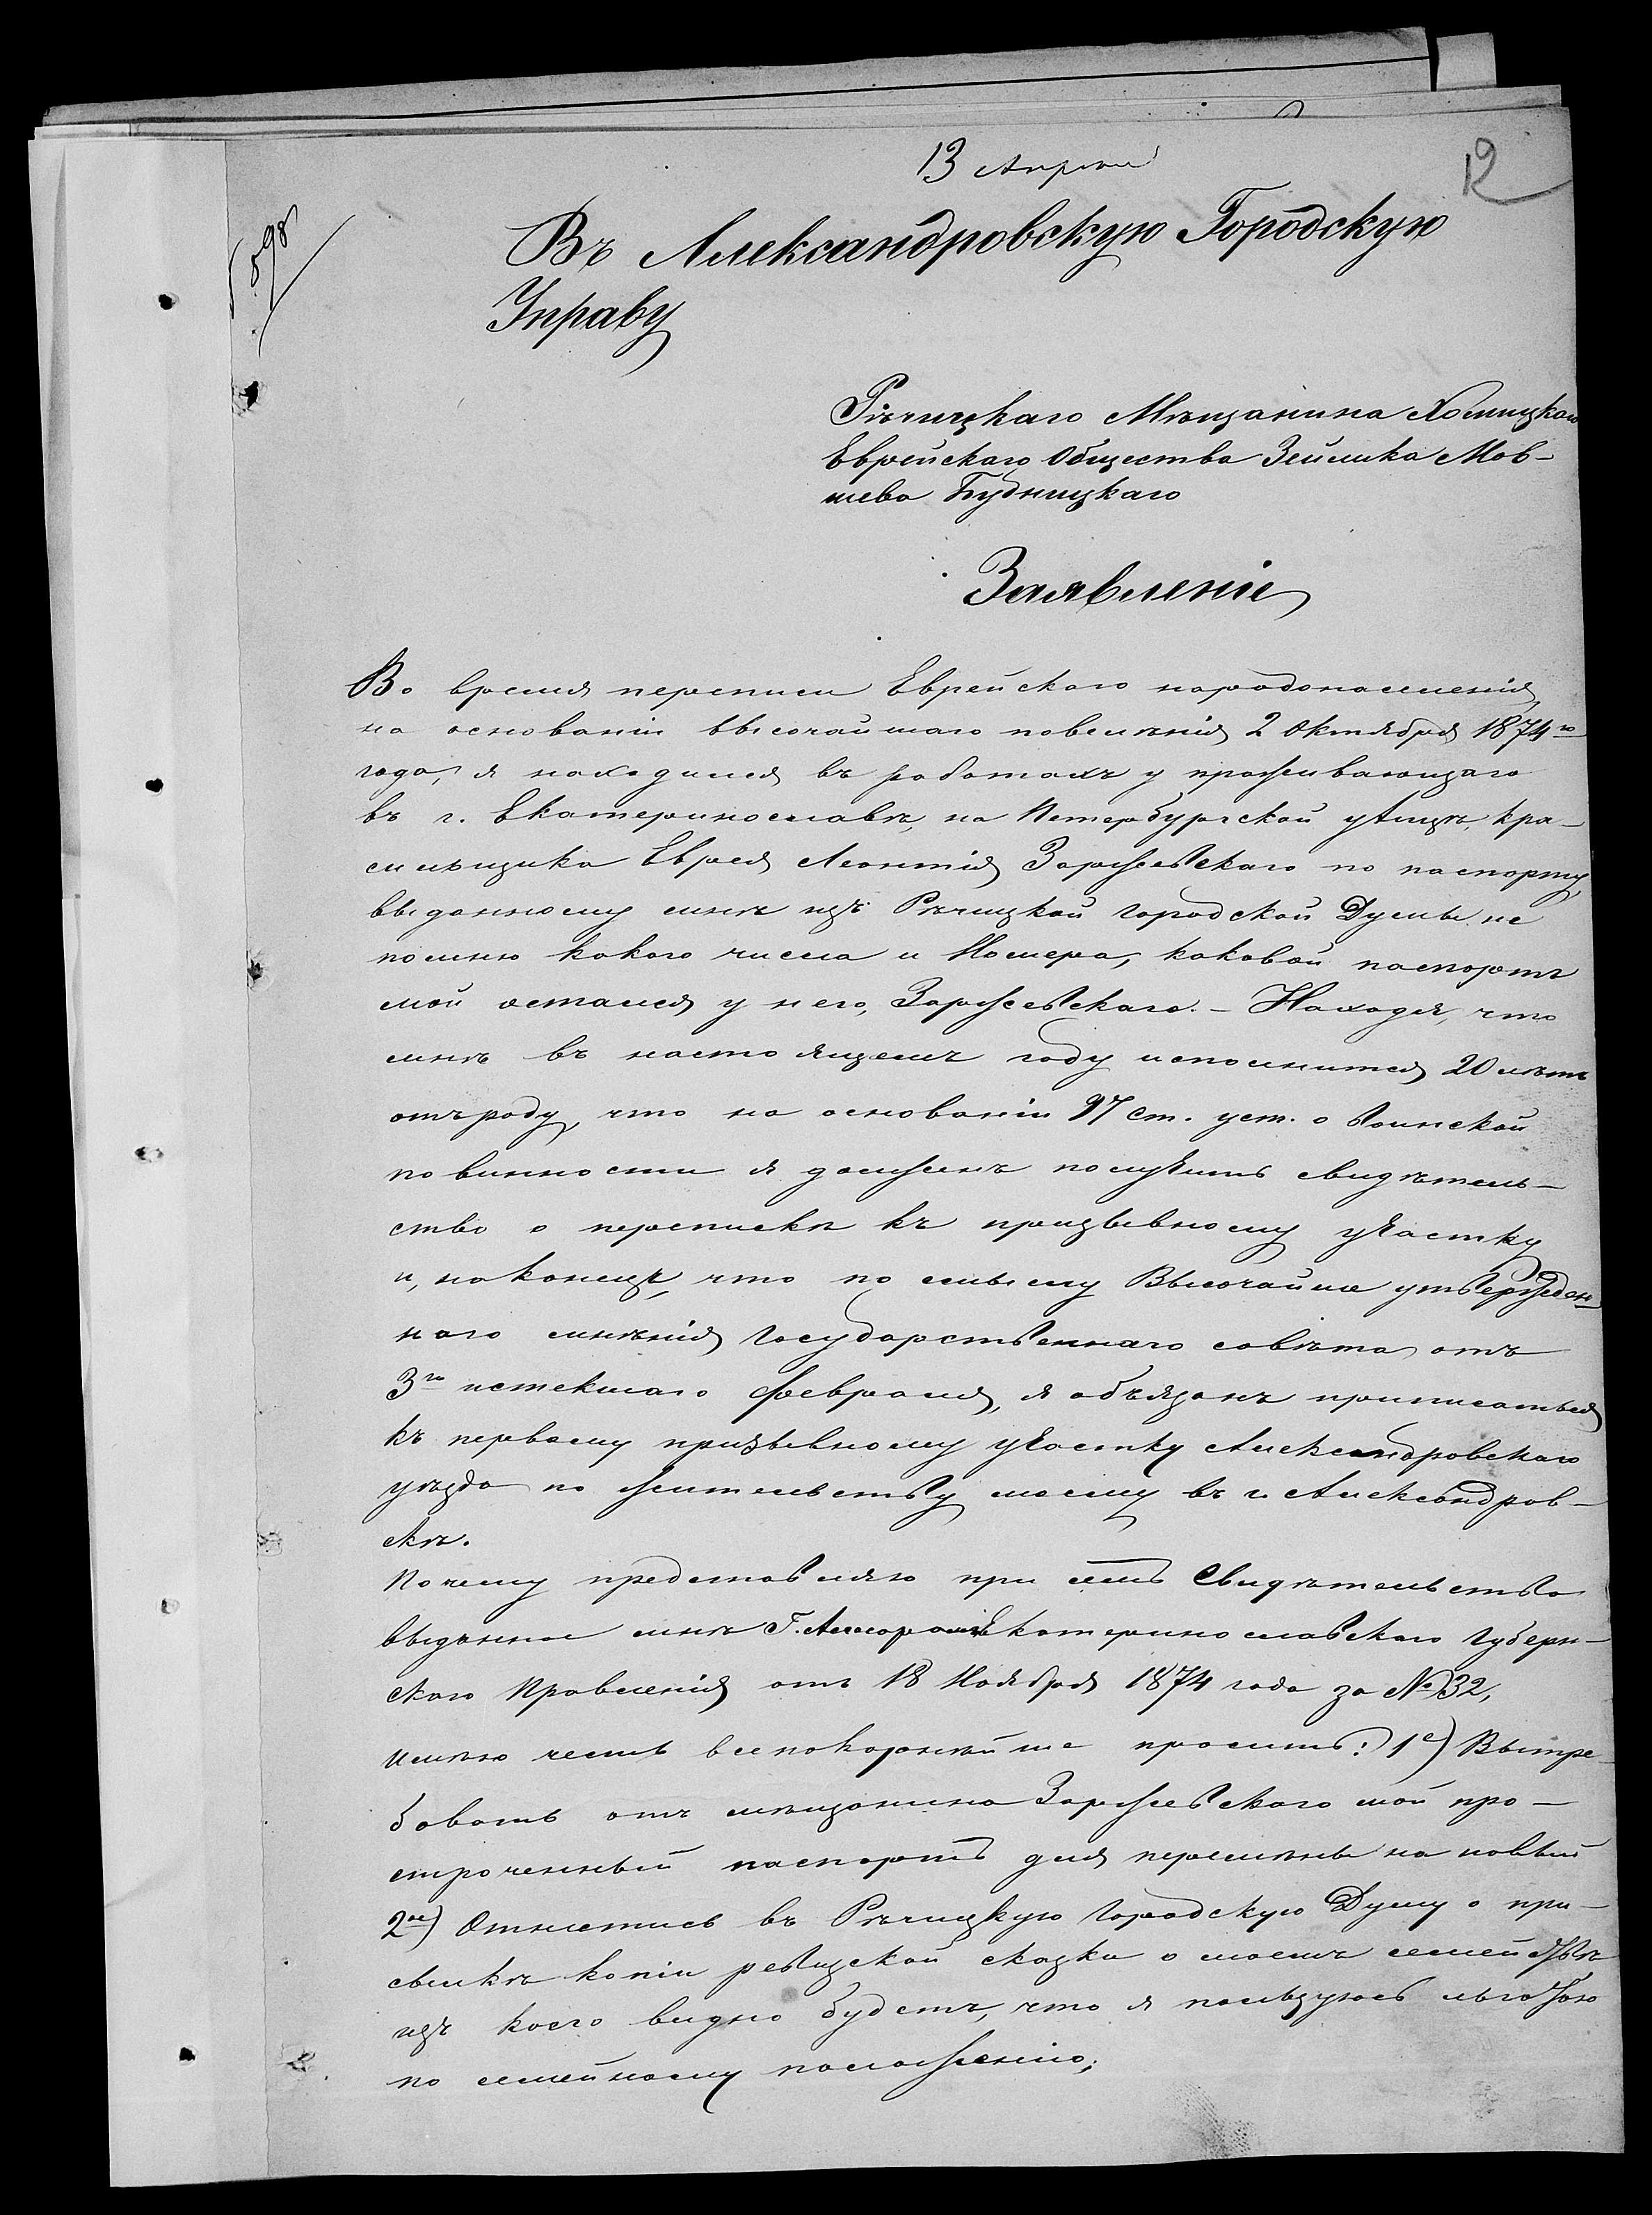 13 Апреля
12
598
Въ Александровскую Городскую
Управу
Рѣчицкаго Мѣщанина Хойницкаго
Еврейскаго Общества Зейлика Мов-
шева Будницкаго
Заявленіе
Во время переписи Еврейскаго народонаселенія,
на основаніи высочайшаго повелѣнія 2 Октября 1874го
года, я находился въ работахъ у проживающаго
въ г. Екатеринославѣ, на Петербургской улицѣ, кра-
сильщика Еврея Леонтія Заржевскаго по паспорту,
выданному мнѣ изъ Рѣчицкой Городской Думы не
помню какого числа и Номера, каковой паспортъ
мой остался у него, Заржевскаго. - Находя, что
мнѣ въ настоящемъ году исполнится 20 лѣтъ
отъ роду, что на основаніи 97 ст. уст. о воинской
повинности я долженъ получить свидѣтель-
ство о переписки къ призывному участку
и, наконецъ, что по смыслу Высочайше утвержден-
наго мнѣнія Государственнаго совѣта отъ
3го истекшаго февраля, я обѣязанъ приписаться
къ первому призывному участку Александровскаго
уѣзда по жительству моему въ г. Александров-
скѣ.
Почему представляю при семъ Свидѣтельство
выданное мнѣ Г. Асессоромъ Екатеринославскаго Губерн-
скаго Правленія отъ 18 Ноября 1874 года за № 32,
имѣю честь всепокорнѣйше просить: 1е) Вытре-
бовать отъ мѣщанина Заржевскаго мой про-
строченный паспортъ для перемѣны на новый
2ое) Отнестись въ Рѣчицкую Городскую Думу о при-
сылкѣ копіи ревизской сказки о моемъ семействѣ
изъ коего видно будетъ, что я пользуюсь льготою
по семейному положенію;